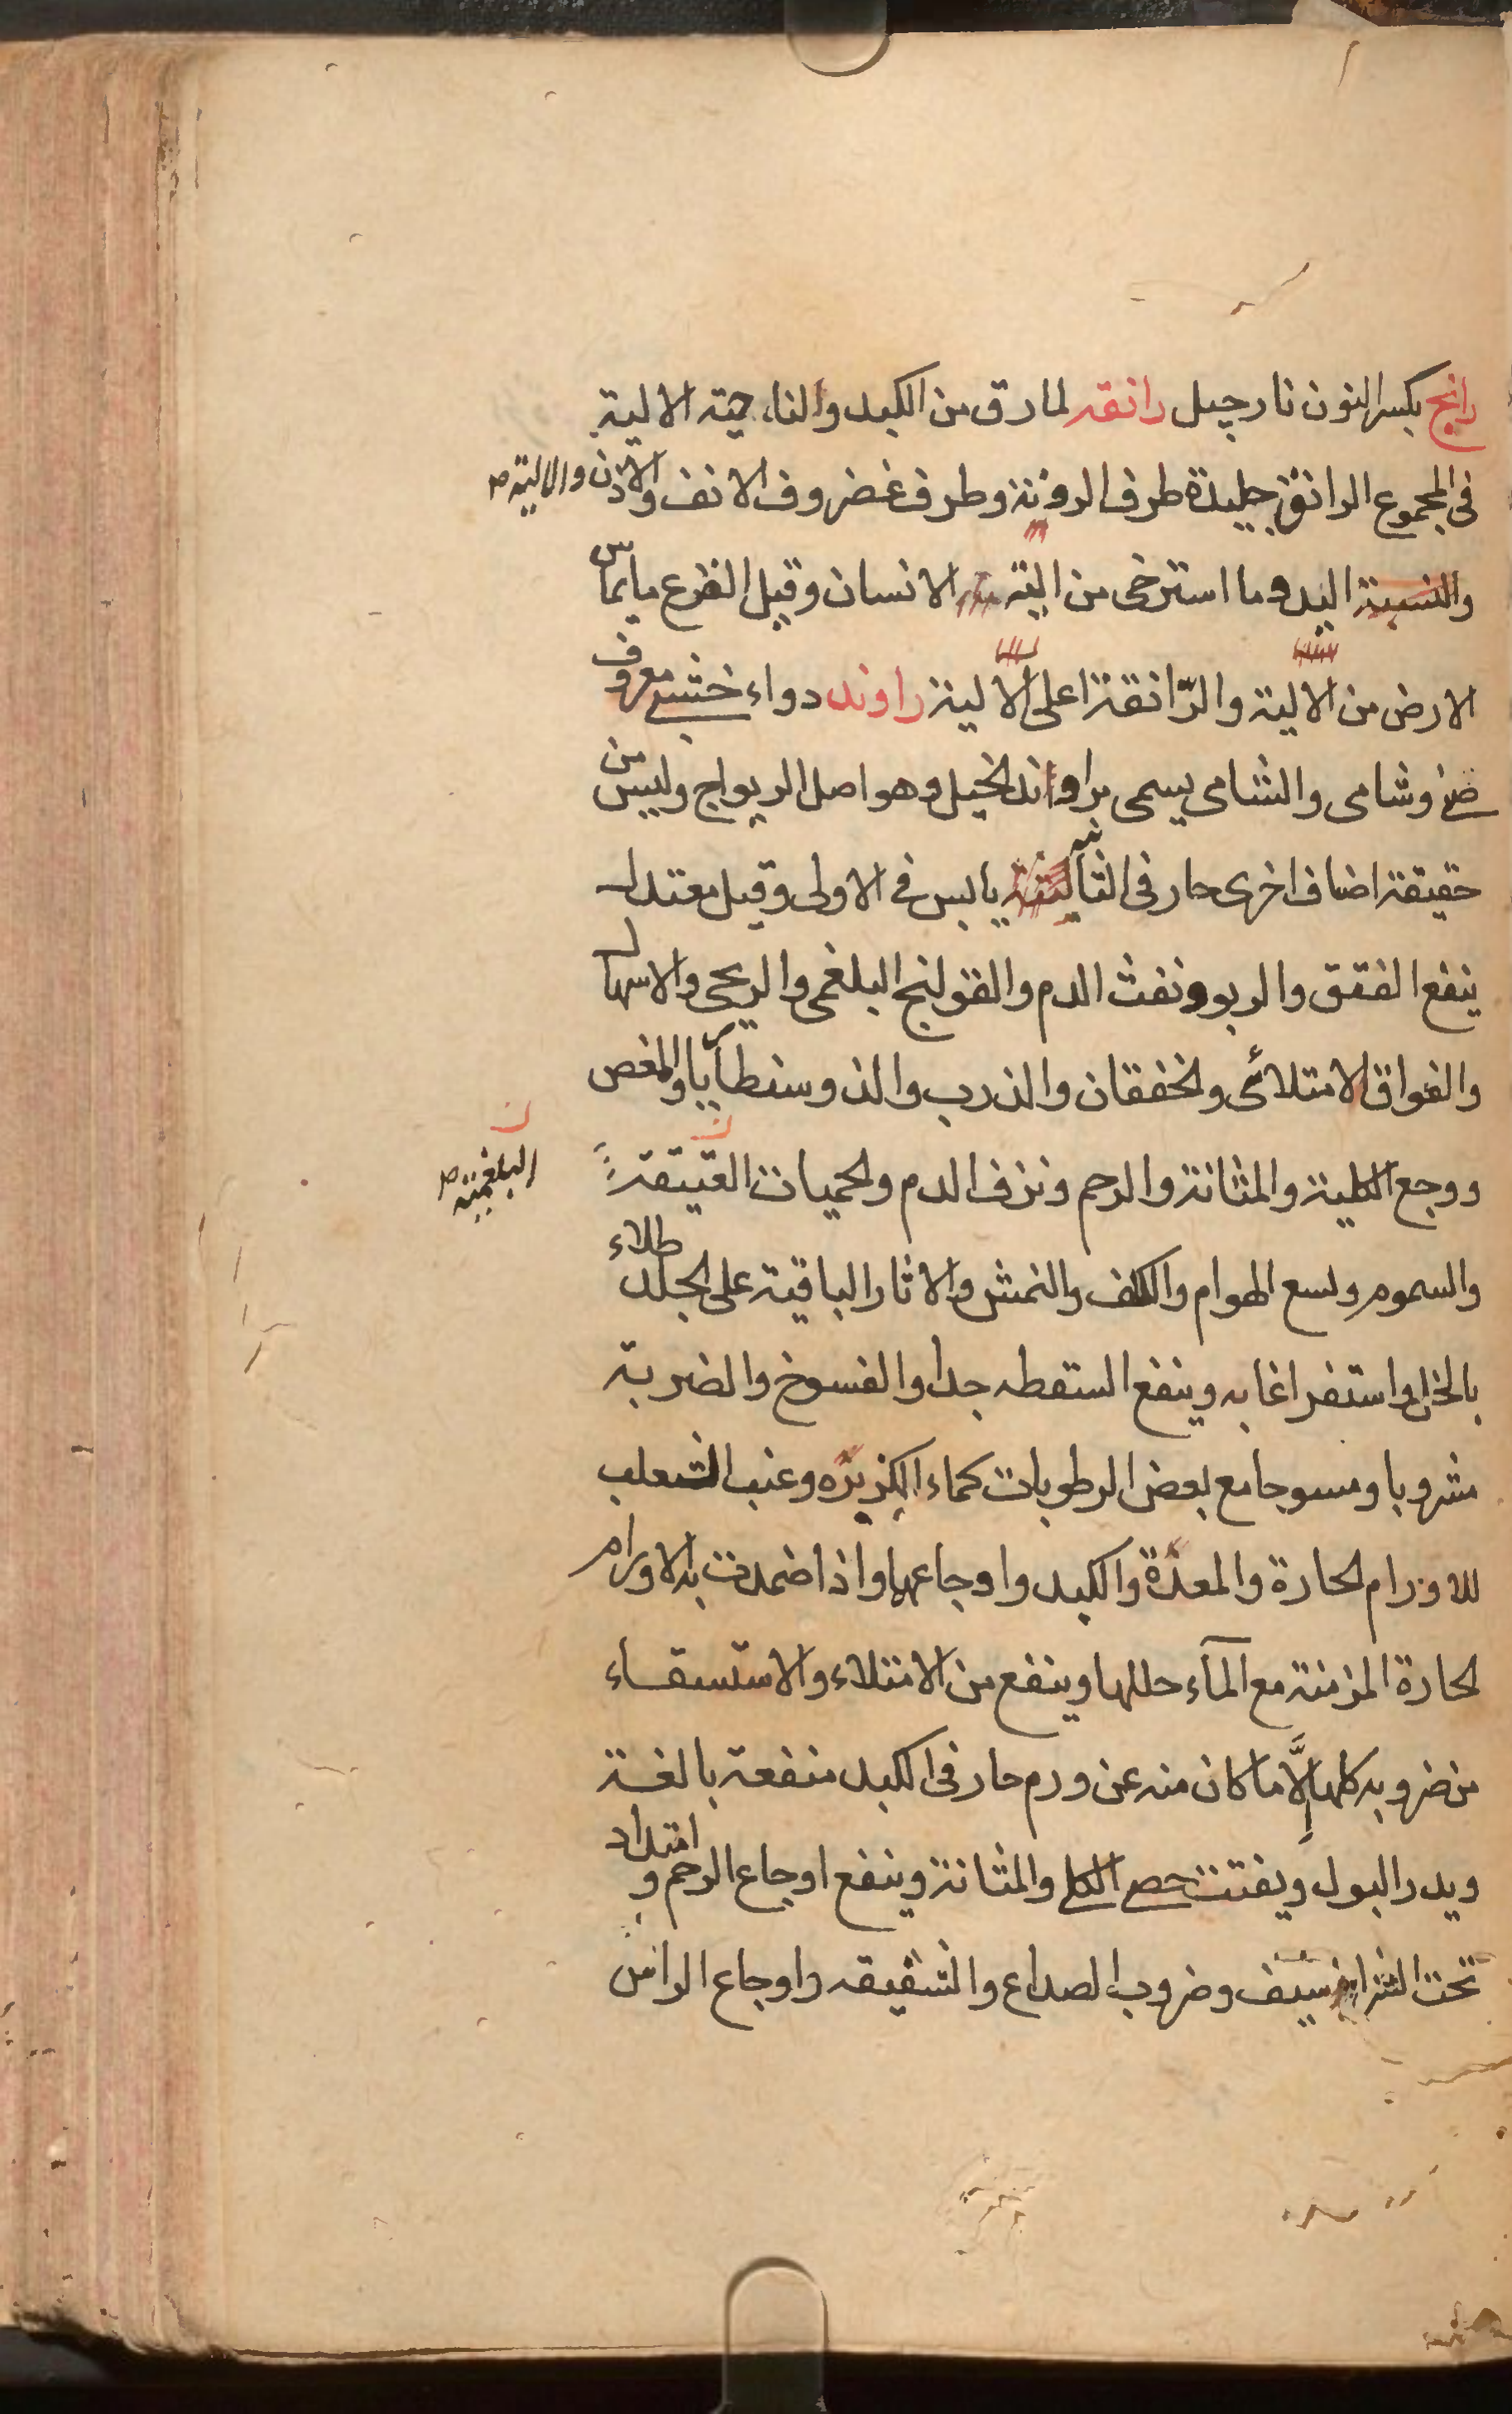 رانج بكسر النون نارجيل رانقه لمارق من الكبد والناحية الالية
فى المجموع الرانفة جليدة طرف الروثة وطرف غضروف الانف والاذن والالية صح
والنسبة اليد وما استرخى من الية الانسان وقيل الفرع مايماس
الارض من الالية والرّانقة اعلى الالية راوند دواء خشبى معروف
صينى وشامى والشامى يسمى براوند الخيل وهو اصل الريواج وليس من
حقيقة اضاف اخرى حار فى الثانية يابس فى الاولى وقيل معتدل
ينفع الفتق والربو ونفث الدم والقولنج البلغمى والريحى والاسهال
والفواق الامتلائى والخفقان والذرب والذوسنطاريا والمغص
ووجع الكلية والمثانة والرحم ونزف الدم والحميات العتيقة
البلغمية صح
والسموم ولسع الهوام والكلف والنمش والاثار الباقية على الجلد طلاء
بالخل واستفراغا به وينفع السقطه جدا والفسوخ والضربة
مشروبا ومسوحا مع بعض الرطوبات كماء الكزبره وعنب الثعلب
للاورام الحارة والمعدة والكبد واوجاعها واذا ضمدت به الاورام
الحارة المزمنة مع المآء حللها وينفع من الامتلاء والاستسقاء
من ضروبه كلها إلَّا ما كان منه عن ورم حار فى الكبد منفعة بالغة
ويدر البول ويفتت حصى الكلى والمثانة وينفع اوجاع الرحم وامتداد
تحت الشراسيف وضروب الصداع والشقيقه واوجاع الراس